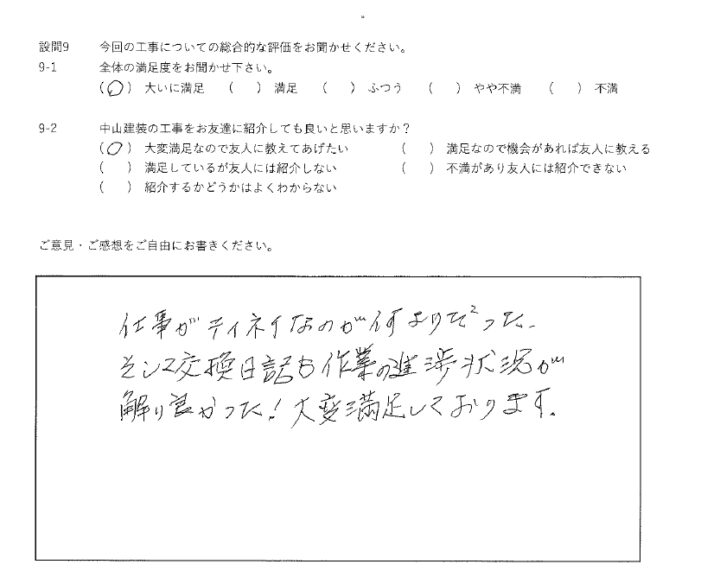 設問9 今回の工事についての総合的な評価をお聞かせください。
9-1 全体の満足度をお聞かせ下さい。
(○) 大いに満足 ( ) 満足 ( ) ふつう ( ) やや不満 ( ) 不満
9-2 中山建装の工事をお友達に紹介しても良いと思いますか？
(○) 大変満足なので友人に教えてあげたい ( ) 満足なので機会があれば友人に教える
( ) 満足しているが友人には紹介しない ( ) 不満があり友人には紹介できない
( ) 紹介するかどうかはよくわからない
ご意見・ご感想をご自由にお書きください。
仕事がテイネイなのが何よりだった。
そして交換日記も作業の進渉状況が
解り良かった！大変満足しております。